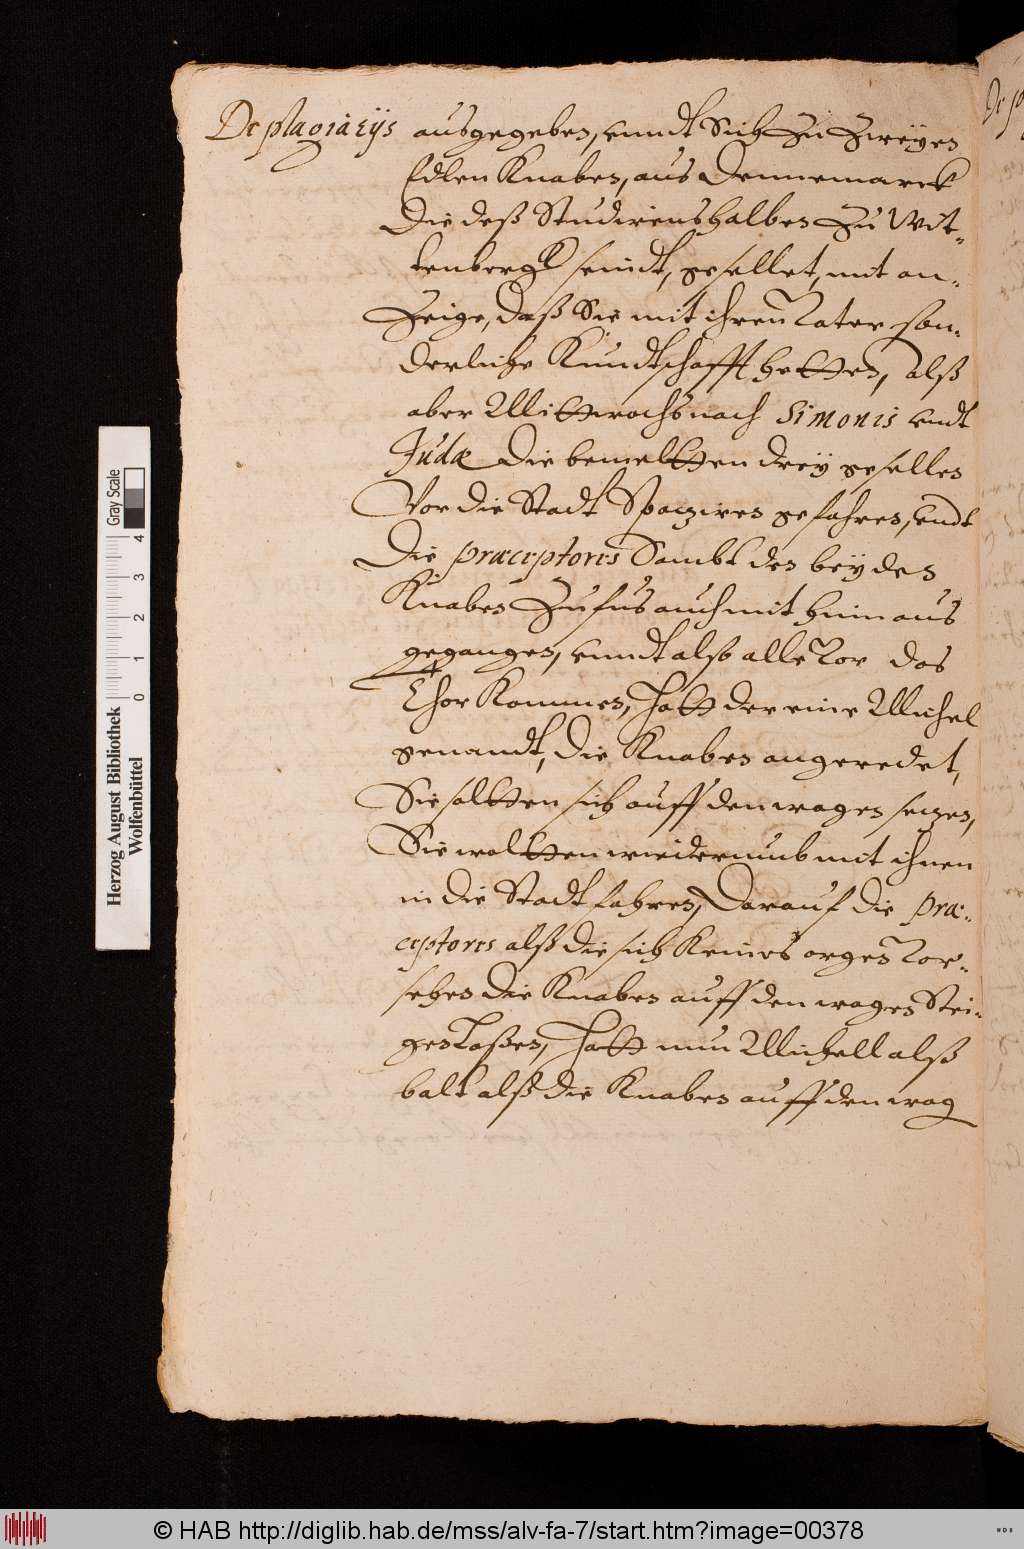 De plagiarijs
ausgegeben, unndt Sich Zu Zweyen
Edlen Knaben, aus Dennemarck
Die deß Studirens halben Zu Wit-
tenbergk seindt, gesellet, mit an-
Zeige, daß Sie mit ihren Vater son-
derliche Kundtschafft hetten, alß
aber Mittwochs nach Simonis undt
Judæ Die bemeltten drey gesellen
Vor die Stadt Spaciren gefahren, undt
Die præceptores Sambt den beyden
Knaben Zu fus auch mit hinnaus
gegangen, unndt also alle vor das
Thor Kommen, Hatt der eine Michel
genandt, Die Knaben angeredet,
Sie soltten sich auff den wagen seczen,
Sie woltten wiederumb mit ihnen
in die Stadt fahren, Darauf die præ-
ceptores alß die sich Keines argen vor-
sehen Die Knaben auff den wagen Stei-
gen Laßen, Hatt nun Michell alß
balt alß die Knaben auff den wag
Herzog August Bibliothek
Wolfenbüttel
0 1 2 3 4
Gray Scale
De p
© HAB http://diglib.hab.de/mss/alv-fa-7/start.htm?image=00378